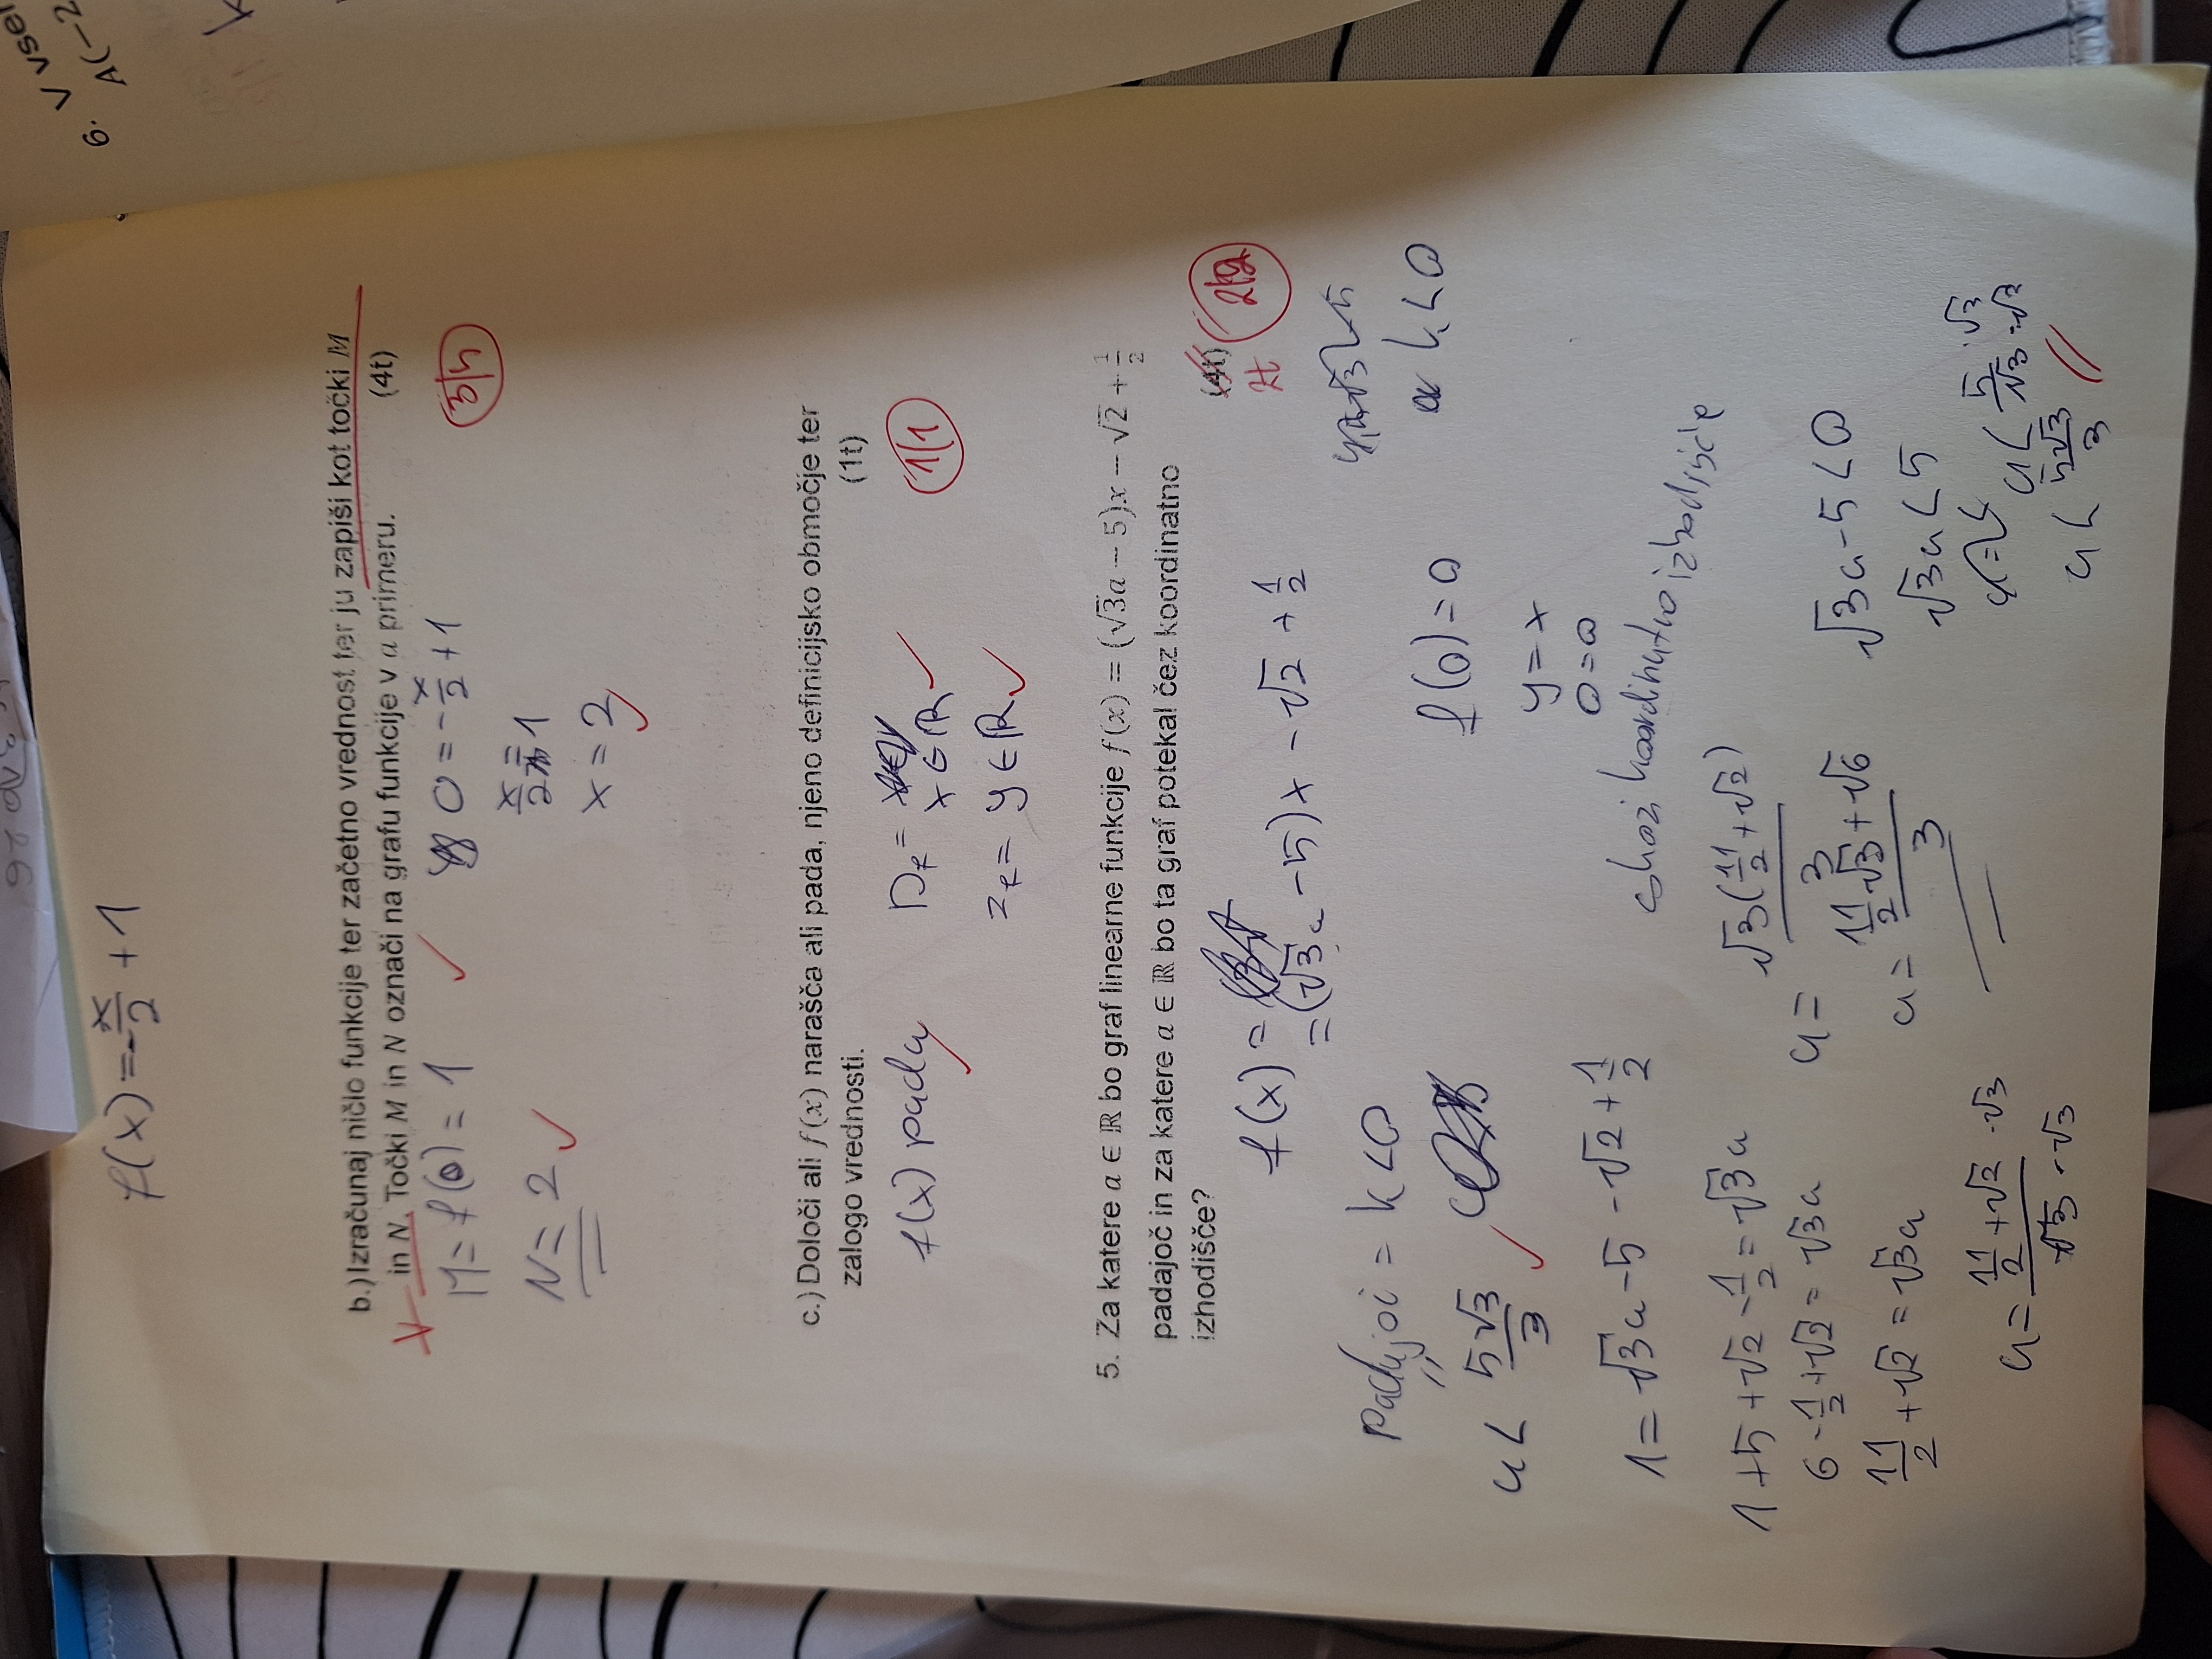 f(x) = -x/2 + 1
6. V vseh
A(-2
k
b.) Izračunaj ničlo funkcije ter začetno vrednost ter ju zapiši kot točki M
in N. Točki M in N označi na grafu funkcije v a primeru. (4t)
M = f(0) = 1
0 = -x/2 + 1
3/5
x/2 = 1
N = 2
x = 2
c.) Določi ali f(x) narašča ali pada, njeno definicijsko območje ter
zalogo vrednosti. (1t)
f(x) pada
Df = x ∈ ℝ
1/1
Zf = y ∈ ℝ
5. Za katere a ∈ ℝ bo graf linearne funkcije f(x) = (√3a − 5)x − √2 + 1/2
padajoč in za katere a ∈ ℝ bo ta graf potekal čez koordinatno
izhodišče? (4t)
2t
2/2
f(x) =
= (√3a - 5)x - √2 + 1/2
Padajoč = k < 0
k < 0
f(0) = 0
a < 5√3/3
y = x
0 = 0
1 = √3a - 5 - √2 + 1/2
skozi koordinatno izhodišče
1 + 5 + √2 - 1/2 = √3a
a = √3(11/2 + √2)/3
6 - 1/2 + √2 = √3a
√3a - 5 < 0
11/2 + √2 = √3a
a = (11/2√3 + √6)/3
√3a < 5
a = (11/2 + √2 · √3)/(√3 · √3)
a < 5/√3 · √3/√3
a < 5√3/3